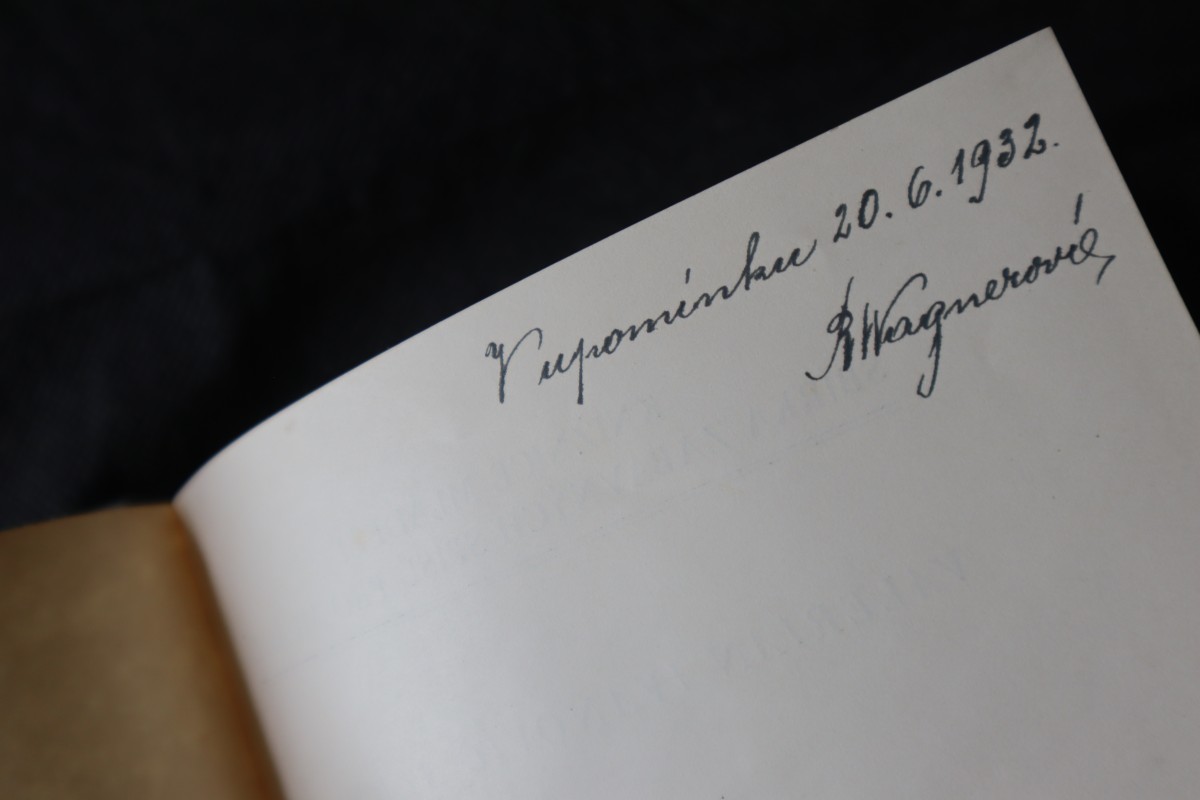 V upomínku 20. 6. 1932.
R Wagnerová